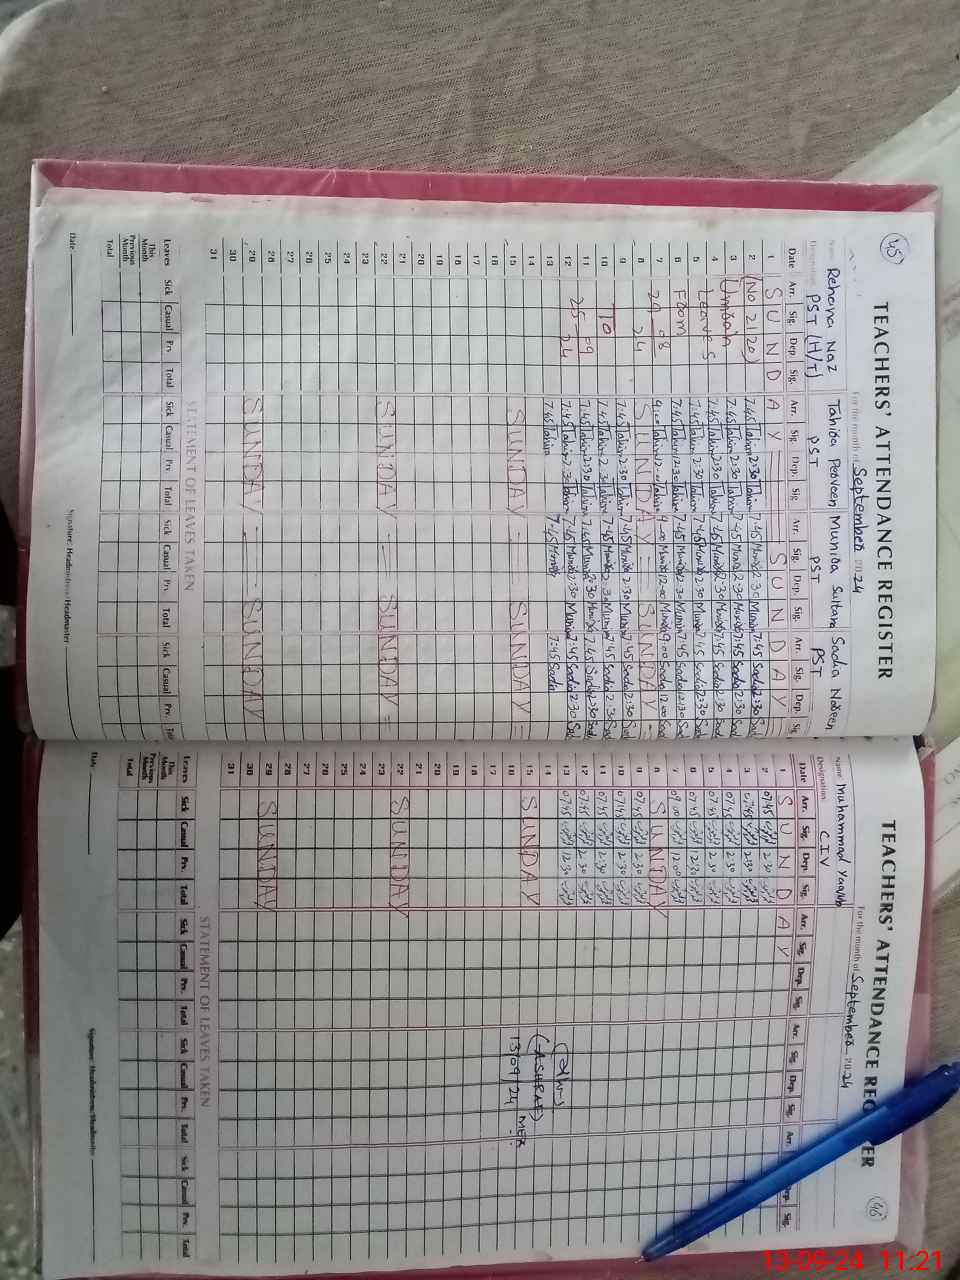 45
TEACHERS' ATTENDANCE REGISTER
For the month of September 2024
Name Rehana Naz Tahira Parveen Munira Sultana Sadia Noreen
Designation PST (H/T) PST PST PST
Date Arr. Sig. Dep. Sig. Arr. Sig. Dep. Sig. Arr. Sig. Dep. Sig. Arr. Sig. Dep. Sig.
1 S U N D A Y S U N D A Y
2 (No 2120) 7:45 Tahira 2:30 Tahira 7:45 Munira 2:30 Munira 7:45 Sadia 2:30
3 Umrah 7:45 Tahira 2:30 Tahira 7:45 Munira 2:30 Munira 7:45 Sadia 2:30
4 7:45 Tahira 2:30 Tahira 7:45 Munira 2:30 Munira 7:45 Sadia 2:30
5 Leaves 7:45 Tahira 2:30 Tahira 7:45 Munira 2:30 Munira 7:45 Sadia 2:30
6 From 7:45 Tahira 12:30 Tahira 7:45 Munira 12:30 Munira 7:45 Sadia 12:30
7 29 08 9:00 Tahira 12:00 Tahira 9:00 Munira 12:00 Munira 9:00 Sadia 12:00
8 24 SUNDAY SUNDAY
9 7:45 Tahira 2:30 Tahira 7:45 Munira 2:30 Munira 7:45 Sadia 2:30
10 To 7:45 Tahira 2:30 Tahira 7:45 Munira 2:30 Munira 7:45 Sadia 2:30
11 25 09 7:45 Tahira 2:30 Tahira 7:45 Munira 2:30 Munira 7:45 Sadia 2:30
12 24 7:45 Tahira 2:30 Tahira 7:45 Munira 2:30 Munira 7:45 Sadia 2:30
13 7:45 Tahira 7:45 Munira 7:45 Sadia
14
15 SUNDAY SUNDAY
16
17
18
19
20
21
22 SUNDAY SUNDAY
23
24
25
26
27
28
29 SUNDAY SUNDAY
30
31
STATEMENT OF LEAVES TAKEN
Leaves Sick Casual Prv. Total Sick Casual Prv. Total Sick Casual Prv. Total Sick Casual Prv. Total
This Month
Previous Month
Total
Date Signature: Headmistress/Headmaster
46
TEACHERS' ATTENDANCE REGISTER
For the month of September 2024
Name Muhammad Yaqub
Designation C.I.V
Date Arr. Sig. Dep. Sig. Arr. Sig. Dep. Sig. Arr. Sig. Dep. Sig. Arr. Dep. Sig.
1 S U N D A Y
2 07:45 2:30
3 07:45 2:30
4 07:45 2:30
5 07:45 2:30
6 07:45 12:30
7 09:00 12:00
8 SUNDAY
9 07:45 2:30
10 07:45 2:30
11 07:45 2:30
12 07:45 2:30
13 07:45 12:30
14
15 SUNDAY
16
17
18
19
20
21
22 SUNDAY
23
24
25
26
27
28
29 SUNDAY
30
31
(ASHRAF)
13/09/24
STATEMENT OF LEAVES TAKEN
Leaves Sick Casual Prv. Total Sick Casual Prv. Total Sick Casual Prv. Total Sick Casual Prv. Total
This Month
Previous Month
Total
Date Signature: Headmistress/Headmaster
13-09-24 11:21